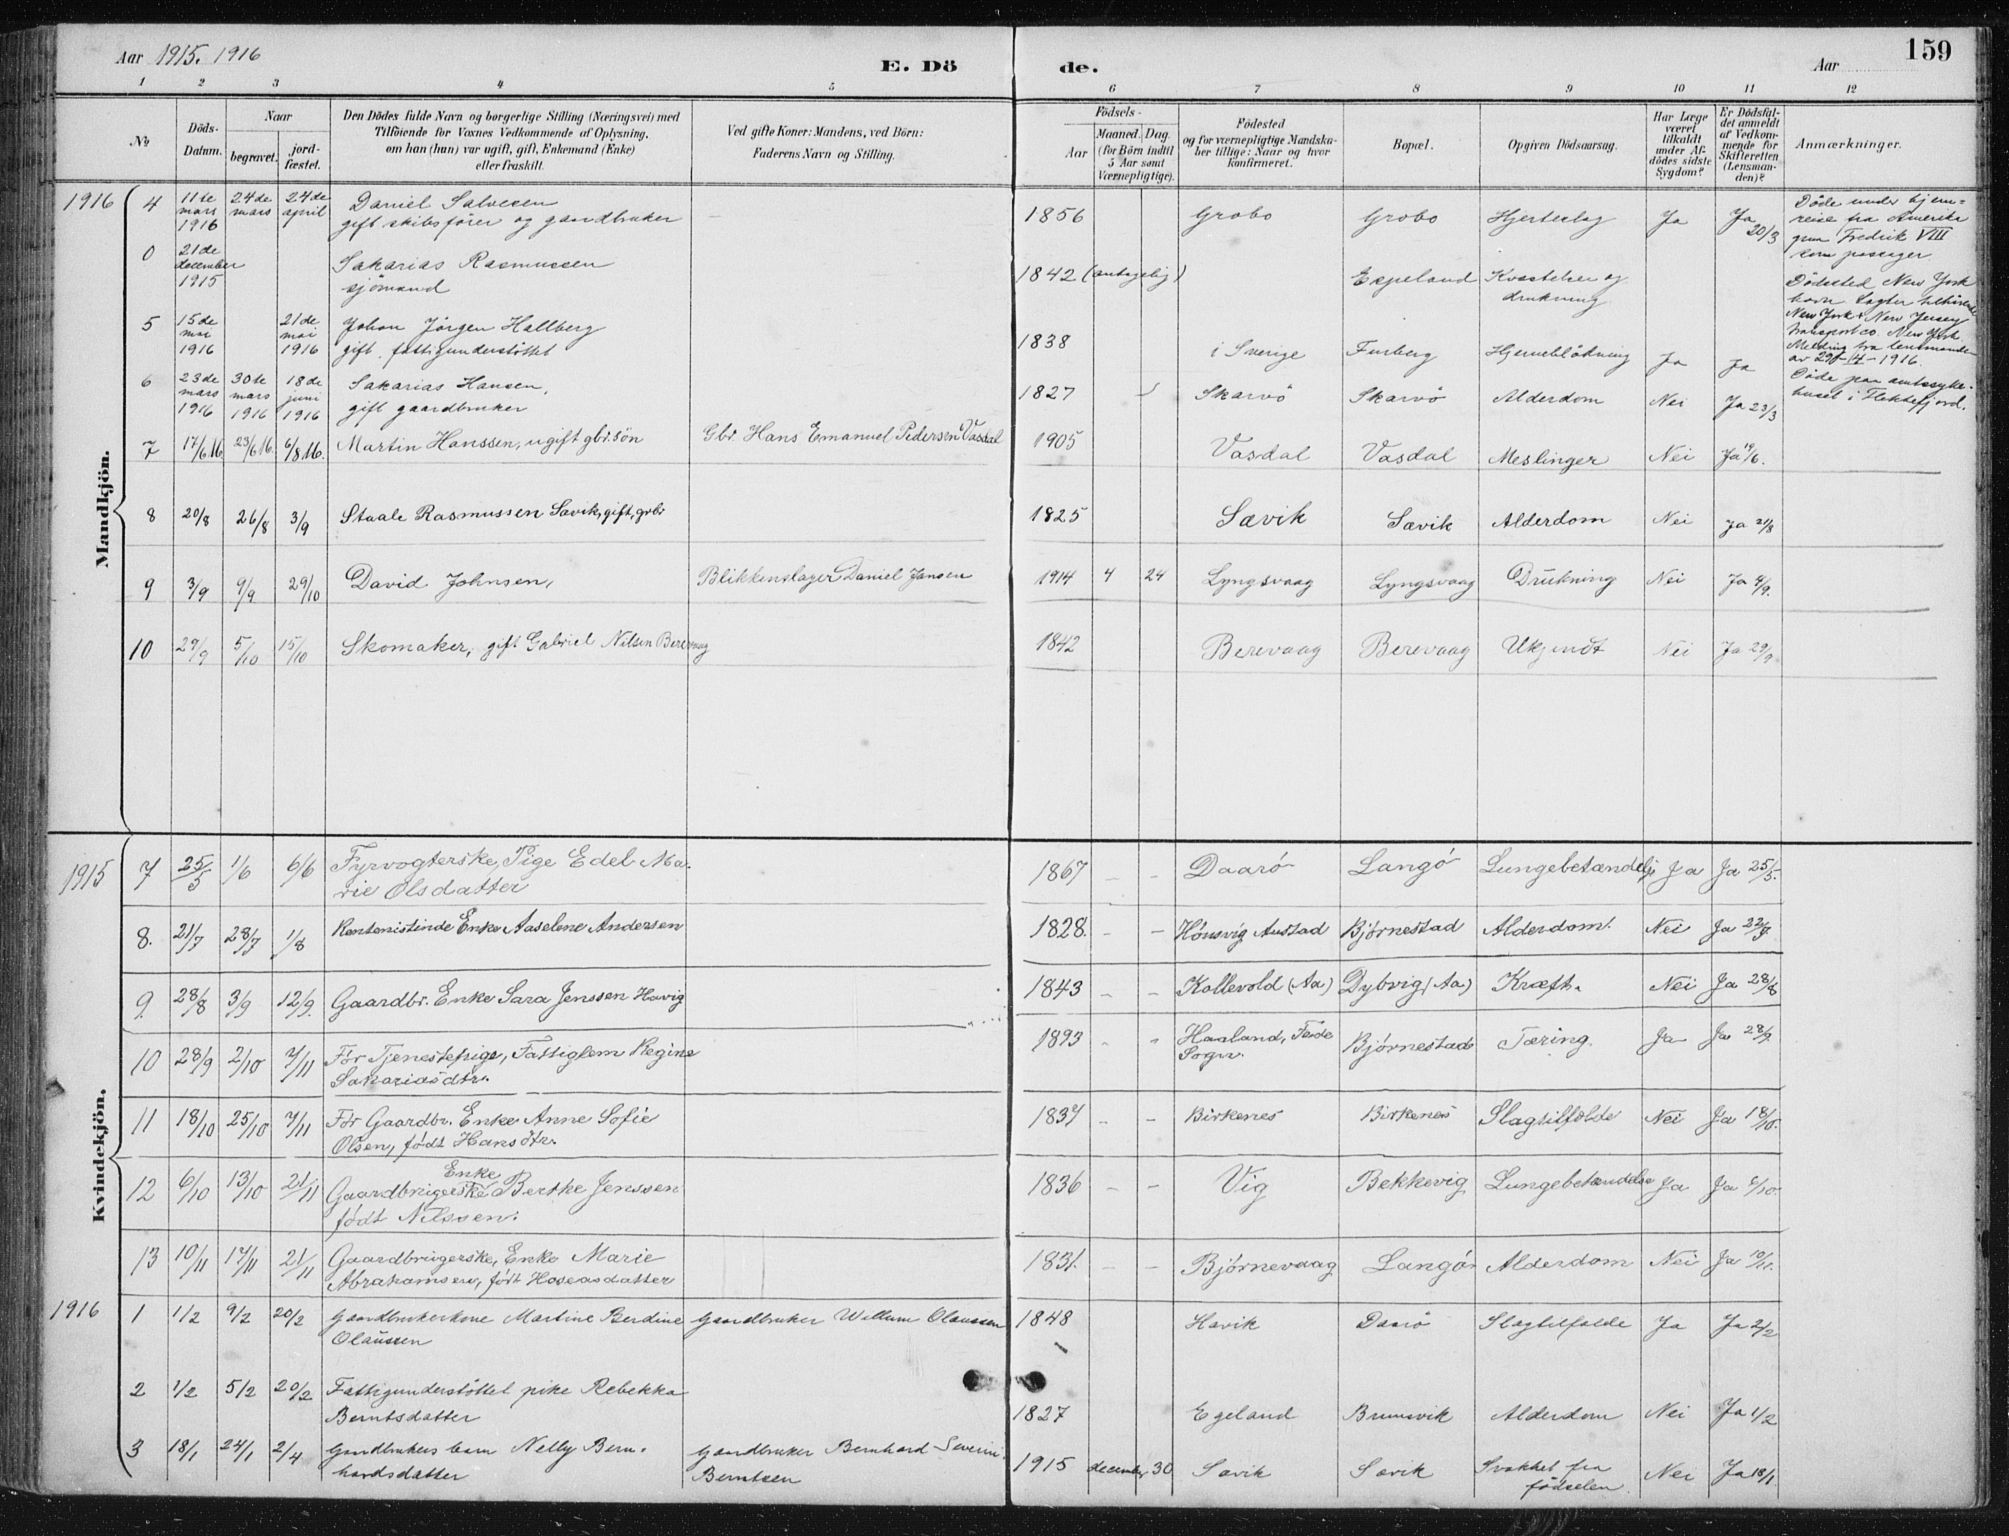 Aar 1915. 1916
E. Dö
de.
Aar
159
1 2 3 4 5 6 7 8 9 10 11 12
No
Döds-
Datum.
Naar
begravet.
jord-
fæstet.
Den Dödes fulde Navn og borgerlige Stilling (Næringsvei) med
Tilföiende for Voxnes Vedkommende af Oplysning,
om han (hun) var ugift, gift, Enkemand (Enke)
eller fraskilt.
Ved gifte Koner: Mandens, ved Börn:
Faderens Navn og Stilling.
Födsels-
Aar
Maaned. Dag.
(for Börn indtil
5 Aar samt
Værnepligtige).
Födested
og for værnepligtige Mandska-
ber tillige: Naar og hvor
konfirmeret.
Bopæl.
Opgiven Dödsaarsag.
Har Læge
været
tilkaldt
under Af-
dödes sidste
Sygdom?
Er Dödsfal-
det anmeldt
af Vedkom-
mende for
Skifteretten
(Lensman-
den)?
Anmærkninger.
Mandkjön.
1916
4 11te mars 1916 24de mars 24de april Daniel Salvesen
gift skibsfører og gaardbruker
1856 Grobo Grobo Hjerteslag Ja Ja 20/3
Døde under hjem-
reise fra Amerika
paa Fredrik VIII
som passager
0 21de december 1915 Sakarias Rasmussen
sjömand
1842 (antagelig) Espeland Kvæstelser og
drukning
Dödssted New York
havn Lægter tilhörende
New York & New Jersey
Transport co. New York
Melding fra lensmanden
av 29/4-1916.
5 15de mai 1916 21de mai 1916 Johan Jörgen Hallberg
gift, fattigunderstöttet
1838 i Sverige Furberg Hjerneblödning Ja Ja
Döde paa amtssyke-
huset i Flekkefjord.
6 23de mars 1916 30te mars 1916 18de juni 1916 Sakarias Hansen,
gift gaardbruker
1827 Skarvö Skarvö Alderdom Nei Ja 23/3
7 17/6 16 23/6 16. 6/8 16. Martin Hanssen, ugift gbr. sön Gbr. Hans Emanuel Pedersen Vasdal 1905 Vasdal Vasdal Meslinger Nei Ja 19/6.
8 20/8 26/8 3/9 Staale Rasmussen Sævik, gift, grbr 1825 Sævik Sævik Alderdom Nei Ja 21/8
9 3/9 9/9 29/10 David Johnsen, Blikkenslager Daniel Jansen 1914 4 24 Lyngsvaag Lyngsvaag Drukning Nei Ja 4/9.
10 29/9 5/10 15/10 Skomaker, gift Gabriel Nilsen Berevaag 1842 Berevaag Berevaag Ukjendt Nei Ja 29/9
Kvindekjön.
1915
7 25/5 1/6 6/6 Fyrvogterske, Pige Edel Ma-
rie Olsdatter
1867 – – Daarö Langö Lungebetændelse Ja Ja 25/5.
8. 21/7 28/7 1/8 Rentenistinde Enke Aaselene Andersen 1828. – – Hönsvig Austad Björnestad Alderdom. Nei Ja 22/7.
9. 28/8 3/9 12/9. Gaardbr. Enke Sara Jenssen Havig 1843 – – Kollevold (Aa) Dybvig (Aa) Kræft. Nei Ja 28/8
10 28/9 2/10 7/11 För Tjenestepige, Fattiglem Regine
Sakariasdtr.
1893 Haaland, Feide
Sogn.
Björnestad Tæring. Ja Ja 28/9.
11 18/10 25/10 7/11 För Gaardbr. Enke Anne Sofie
Olsen, født Hansdtr.
1837 – – Birkenes Birkenes Slagtilfælde Nei Ja 18/10.
12 6/10 13/10 21/11 Enke
Gaardbrugerske Berthe Jenssen
født Nilssen.
1836 – – Vig Bekkevig Lungebetændelse Ja Ja 6/10.
13 10/11 17/11 21/11 Gaardbrugerske, Enke Marie
Abrahamsen, født Hoseasdatter
1831. – – Björnevaag Langö Alderdom Nei Ja 10/11.
1916
1 1/2 9/2 20/2 Gaardbrukerkone Martine Berdine
Olaussen
Gaardbruker Willum Olaussen 1848 Havik Daarö Slagtilfælde Ja Ja 2/2
2 1/2 5/2 20/2 Fattigunderstöttet pike Rebekka
Berntsdatter
1827 Egeland Brunsvik Alderdom Nei Ja 1/2
3 18/1 24/1 2/4 Gaardbrukers barn Nelly Bern-
hardsdatter
Gaardbruker Bernhard Severin
Berntsen
1915 december 30 Sævik Sævik Svakhet fra
födselen.
Nei Ja 18/1